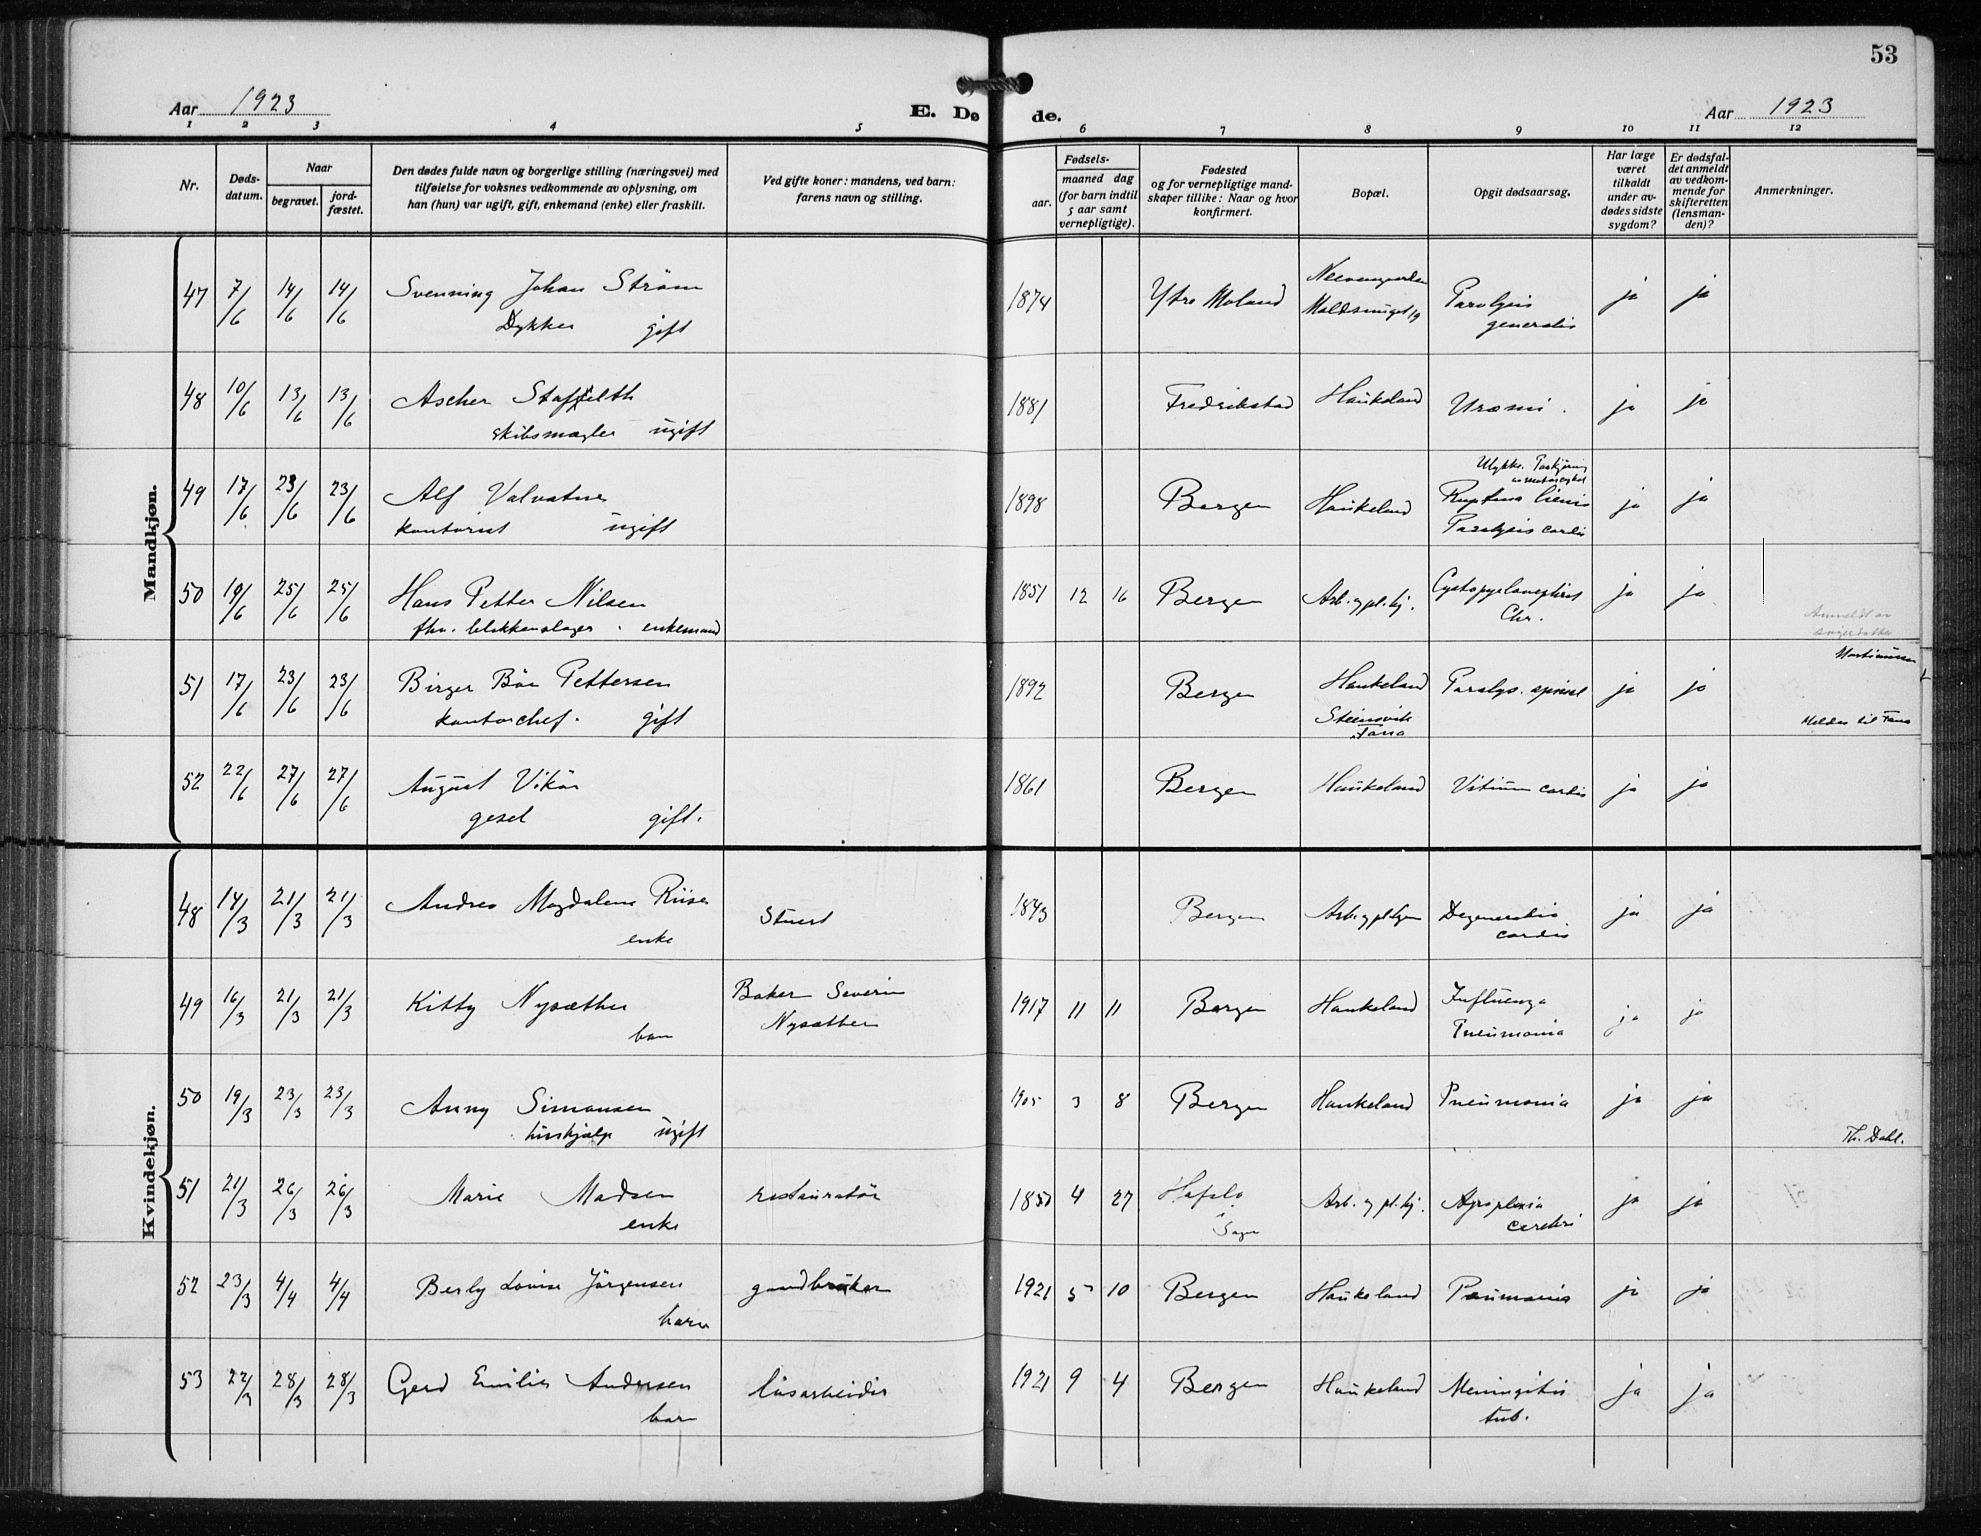 53
Aar 1923
E. Dø de.
Aar 1923
1 2 3 4 5 6 7 8 9 10 11 12
Nr.
Døds-datum.
Naar
begravet.
jord-fæstet.
Den dødes fulde navn og borgerlige stilling (næringsvei) med
tilføielse for voksnes vedkommende av oplysning, om
han (hun) var ugift, gift, enkemand (enke) eller fraskilt.
Ved gifte koner: mandens, ved barn:
farens navn og stilling.
Fødsels-
aar.
maaned dag
(for barn indtil
5 aar samt
vernepligtige).
Fødested
og for vernepligtige mand-
skaper tillike: Naar og hvor
konfirmert.
Bopæl.
Opgit dødsaarsag.
Har læge
været
tilkaldt
under av-
dødes sidste
sygdom?
Er dødsfal-
det anmeldt
av vedkom-
mende for
skifteretten
(lensman-
den)?
Anmerkninger.
Mandkjøn.
47 7/6 14/6 14/6 Svenning Johan Strøm 1874 Ytre Moland Neevengaarden Paralysis ja ja
Dykker gift generalis
48 10/6 13/6 13/6 Ascher 1881 Fredrikstad Haukeland Uræmi. ja ja
skibsmægler ugift
49 17/6 23/6 23/6 Alf Valvatne 1898 Bergen Haukeland Ulykke. Paakjøring
av motorcykel
Ruptura lienis ja ja
kontorist ugift Paralysis cordis
50 19/6 25/6 25/6 Hans Petter Nilsen 1851 12 16 Bergen Arb. og pl. hj. ja ja
fhv. blikkenslager. enkemand Chr.
Anmeldt av
svigerdatter
Martinussen
51 17/6 23/6 23/6 Birger Böe Pettersen 1892 Bergen Haukeland Paralys. spinal ja ja
kontorchef. gift Steinsvik
Fana
Meldes til Fana
52 22/6 27/6 27/6 August Vikör 1861 Bergen Haukeland Vitium cordis ja ja
gesel gift.
Kvindekjøn.
48 14/3 21/3 21/3 Andrea Magdalene Riise Stuert 1843 Bergen Degeneratio ja ja
enke cordis
49 16/3 21/3 21/3 Kitty Nysæther Baker Severin 1917 11 11 Bergen Haukeland Influenza ja ja
barn Nysæther Pneumonia
50 19/3 23/3 23/3 Anny Simonsen 1905 3 8 Bergen Haukeland Pneumonia ja ja
hushjælp ugift Th. Dahl.
51 21/3 26/3 26/3 Marie Madsen restauratör 1850 4 27 Hafslo Arb. og pl. hj. Apoplexia ja ja
enke i Sogn cerebri
52 23/3 4/4 4/4 Berly Lovise Jörgensen gaardbruker 1921 5 10 Bergen Haukeland Pneumonia ja ja
barn
53 22/3 28/3 28/3 Gerd Emilie Andersen lösarbeider 1921 9 4 Bergen Haukeland Meningitis ja ja
barn tub.